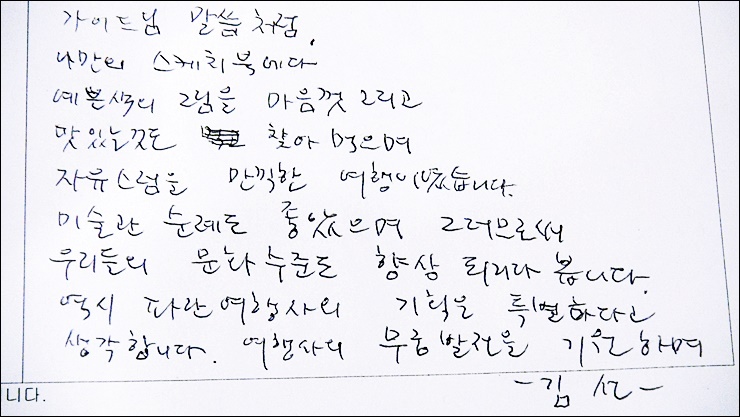 가이드님 말씀처럼.
나만의 스케치북에다
예쁜색의 그림을 마음껏 그리고
맛있는것도 찾아 먹으며
자유스럼을 만끽한 여행이었습니다.
미술관 순례도 좋았으며 그러므로써
우리들의 문화수준도 향상 되리라 봅니다.
역시 파란여행사의 기획은 특별하다고
생각합니다. 여행사의 무궁발전을 기원하며
-김 선-
니다.